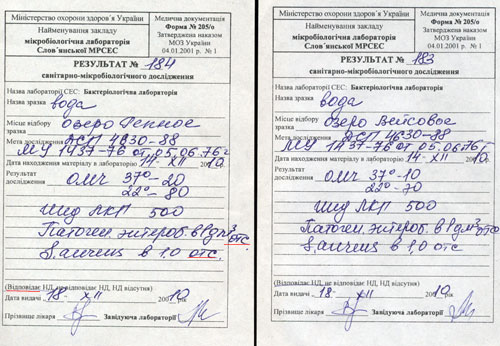 Міністерство охорони здоров'я України
Найменування закладу
мікробіологічна лабораторія
Слов'янської МРСЕС
Медична документація
Форма № 205/о
Затверджена наказом
МОЗ України
04.01.2001 р. № 1
РЕЗУЛЬТАТ № 184
санітарно-мікробіологічного дослідження
Назва лабораторії СЕС: Бактеріологічна лабораторія
Назва зразка вода
Місце відбору зразка озеро Репное
Мета дослідження 4630-88
МУ 1437-76 от 05.06.76 г
Дата находження матеріалу в лабораторію 14. XII 2010р.
Результат дослідження ОМЧ 37º-20
22º-80
Инд ЛКП 500
Патоген. энтероб. в 1 дм³ отс
S. aureus в 1,0 отс.
(Відповідає НД, не відповідає НД, НД відсутня)
Дата видачі 18. XII 2010 рік
Прізвище лікаря Завідуюча лабораторії
Міністерство охорони здоров'я України
Найменування закладу
мікробіологічна лабораторія
Слов'янської МРСЕС
Медична документація
Форма № 205/о
Затверджена наказом
МОЗ України
04.01.2001 р. № 1
РЕЗУЛЬТАТ № 183
санітарно-мікробіологічного дослідження
Назва лабораторії СЕС: Бактеріологічна лабораторія
Назва зразка вода
Місце відбору зразка озеро Вейсовое
Мета дослідження 4630-88
МУ 1437-76 от 05.06.76 г
Дата находження матеріалу в лабораторію 14. XII 2010р.
Результат дослідження ОМЧ 37º-10
22º-70
Инд ЛКП 500
Патоген. энтероб. в 1 дм³ отс
S. aureus в 1,0 отс.
(Відповідає НД, не відповідає НД, НД відсутня)
Дата видачі 18. XII 2010 рік
Прізвище лікаря Завідуюча лабораторії